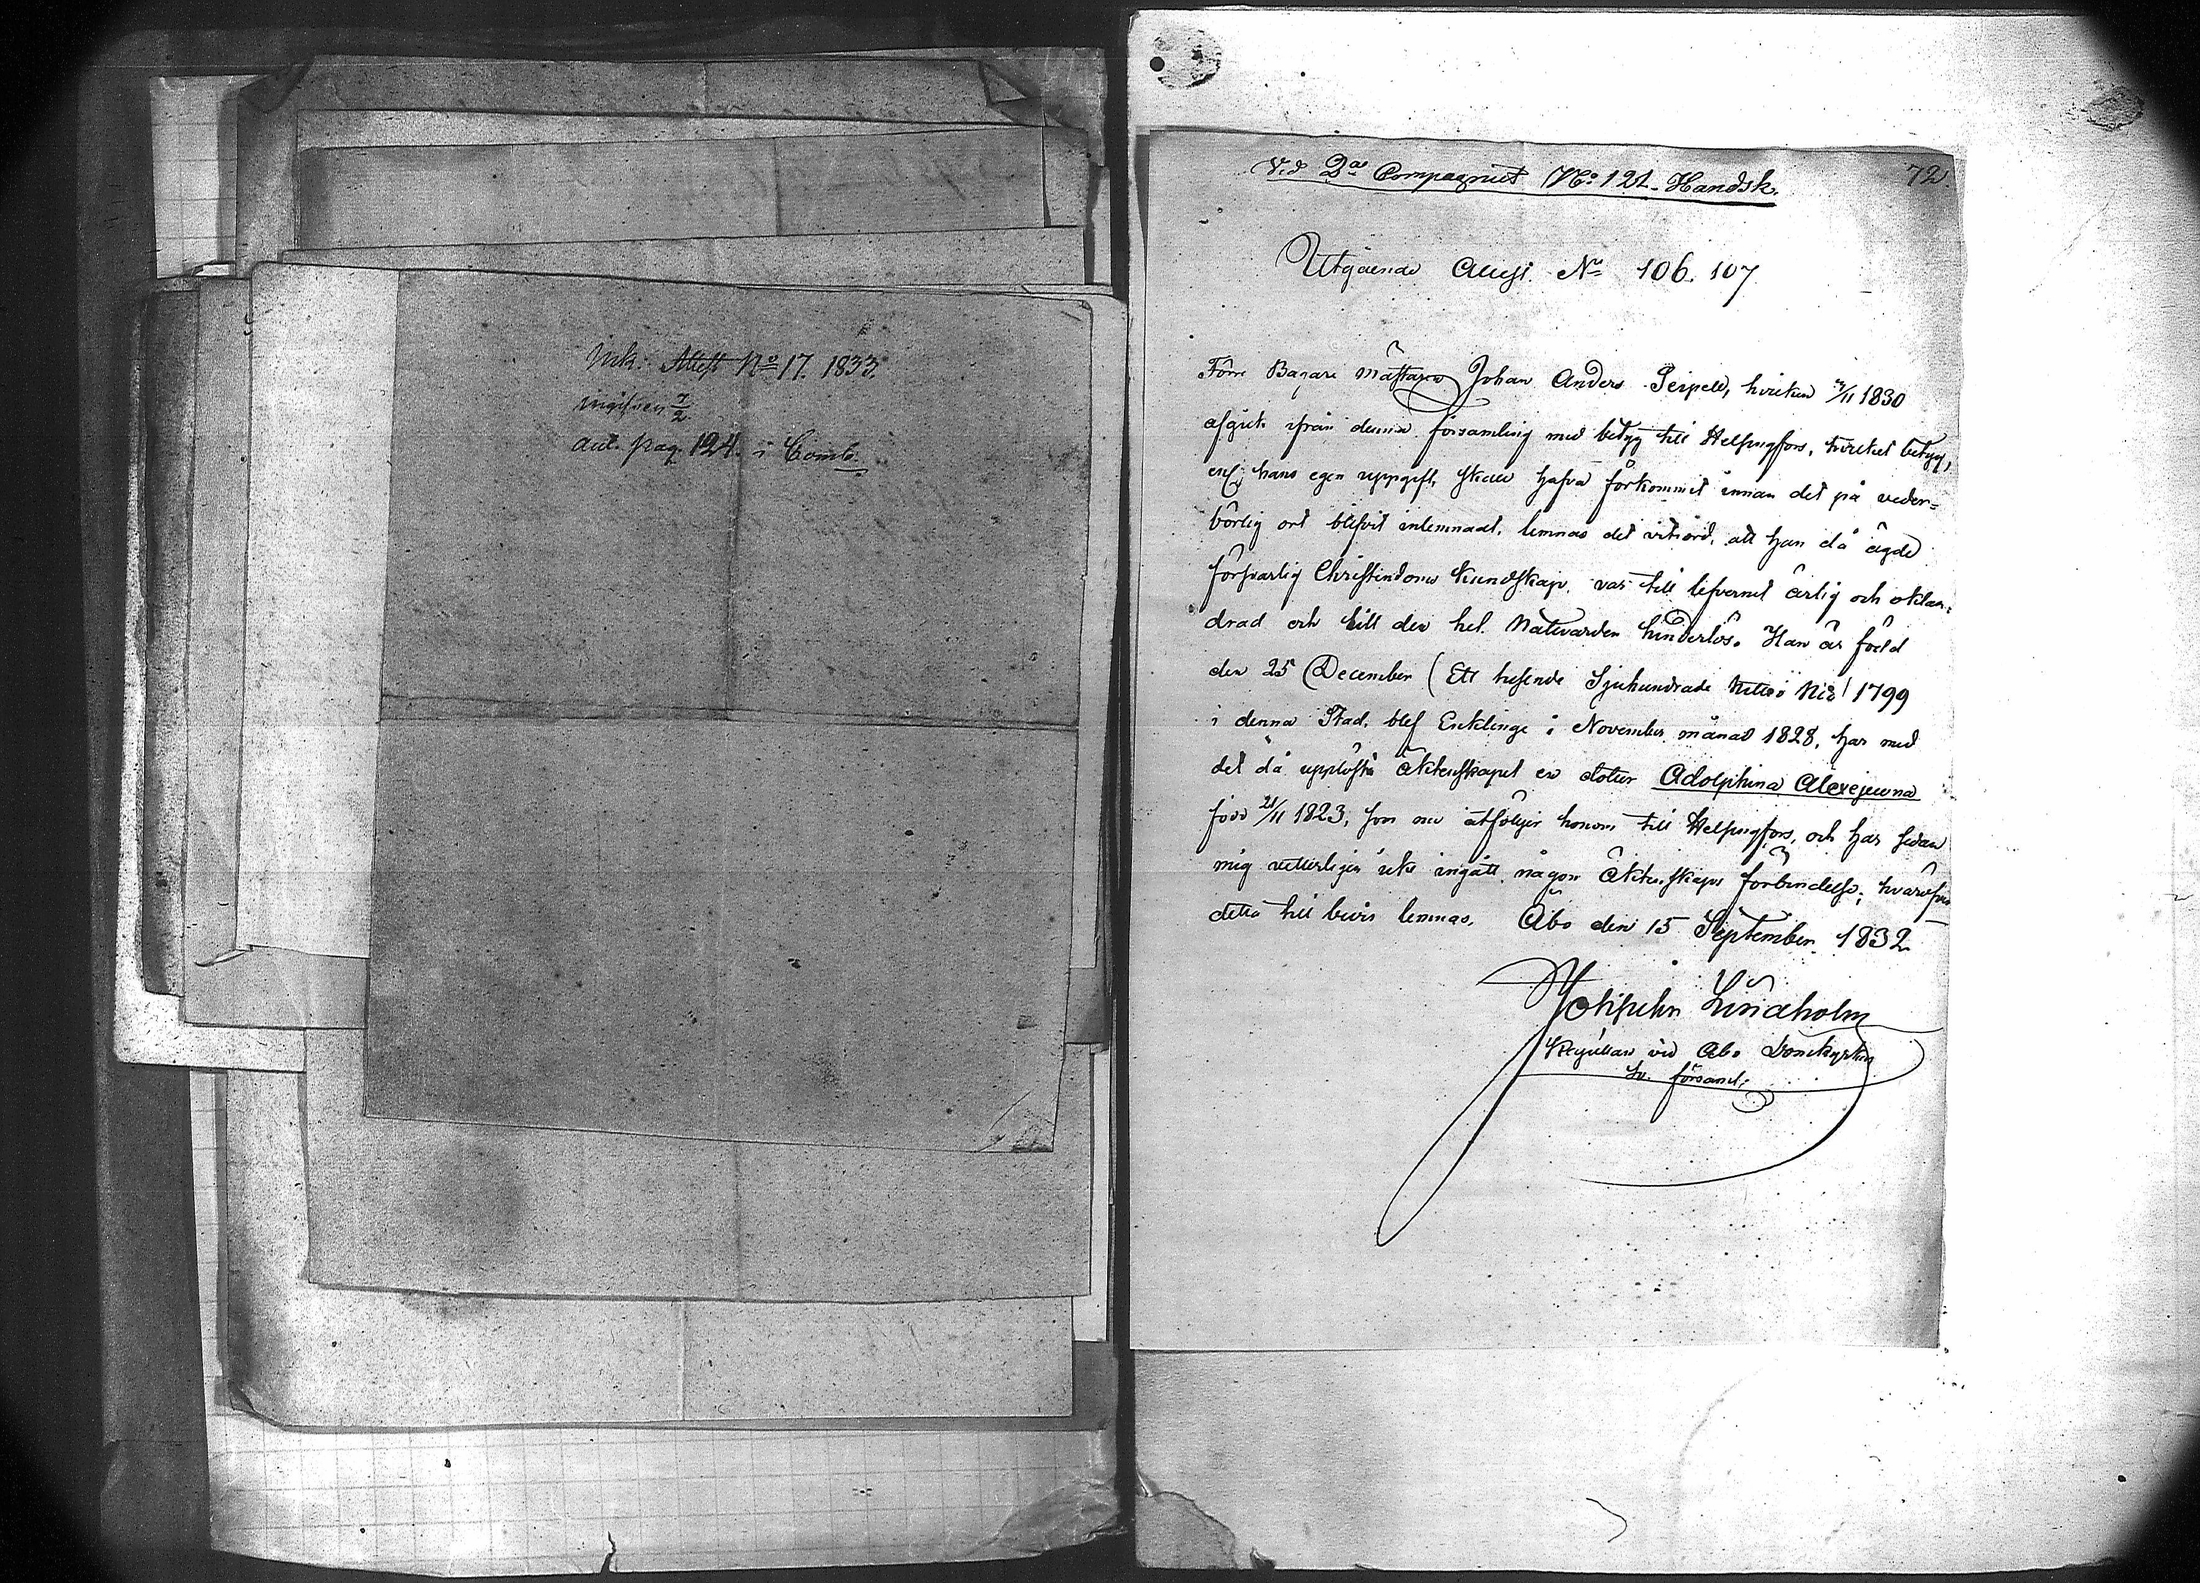 Ink. Attest No 17. 1833.
ingifven 7/2
ant. pag. 124. i Comb.
Vid 2a Compagniet No 121. Handsk.
72.
Utgående Attest No 106. 107
Förre Bagare Mästaren Johan Anders Seipell, hvilken /11 1830
afgått ifrån denna församling med betyg till Helsingfors, hvilket betyg,
enl. hans egen uppgift, skall hafva förkommit innan det på veder=
börlig ort blifvit inlemnadt, lemnas det vitsord, att han då ägde
försvarlig Christendoms kundskap, var till lefvernet ärlig och oklan=
drad och till den hel. Nattvarden hinderlös. Han är född
den 25 December (Ett tusende Sjuhundrade Nittio Nio) 1799
i denna Stad, blef Enkling i November månad 1828, har med
det då upplösta äktenskapet en dotter Adolphina Alexejewna
född 21/11 1823, som nu åtföljer honom till Helsingfors, och har sedan
mig vetterligen icke ingått någon Äktenskaps förbindelse; hvaröfver
detta till bevis lemnas. Åbo den 15 September 1832
Lindholm
vid Åbo Domkyrko
sv. församl: